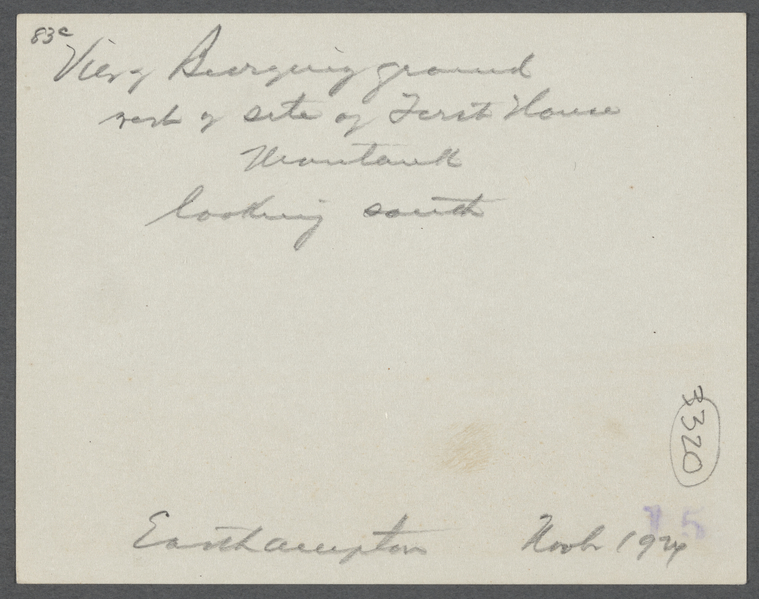 83c
View of Burying ground
west of site of First House
Montauk
looking south
3320
Easthampton 1924
75